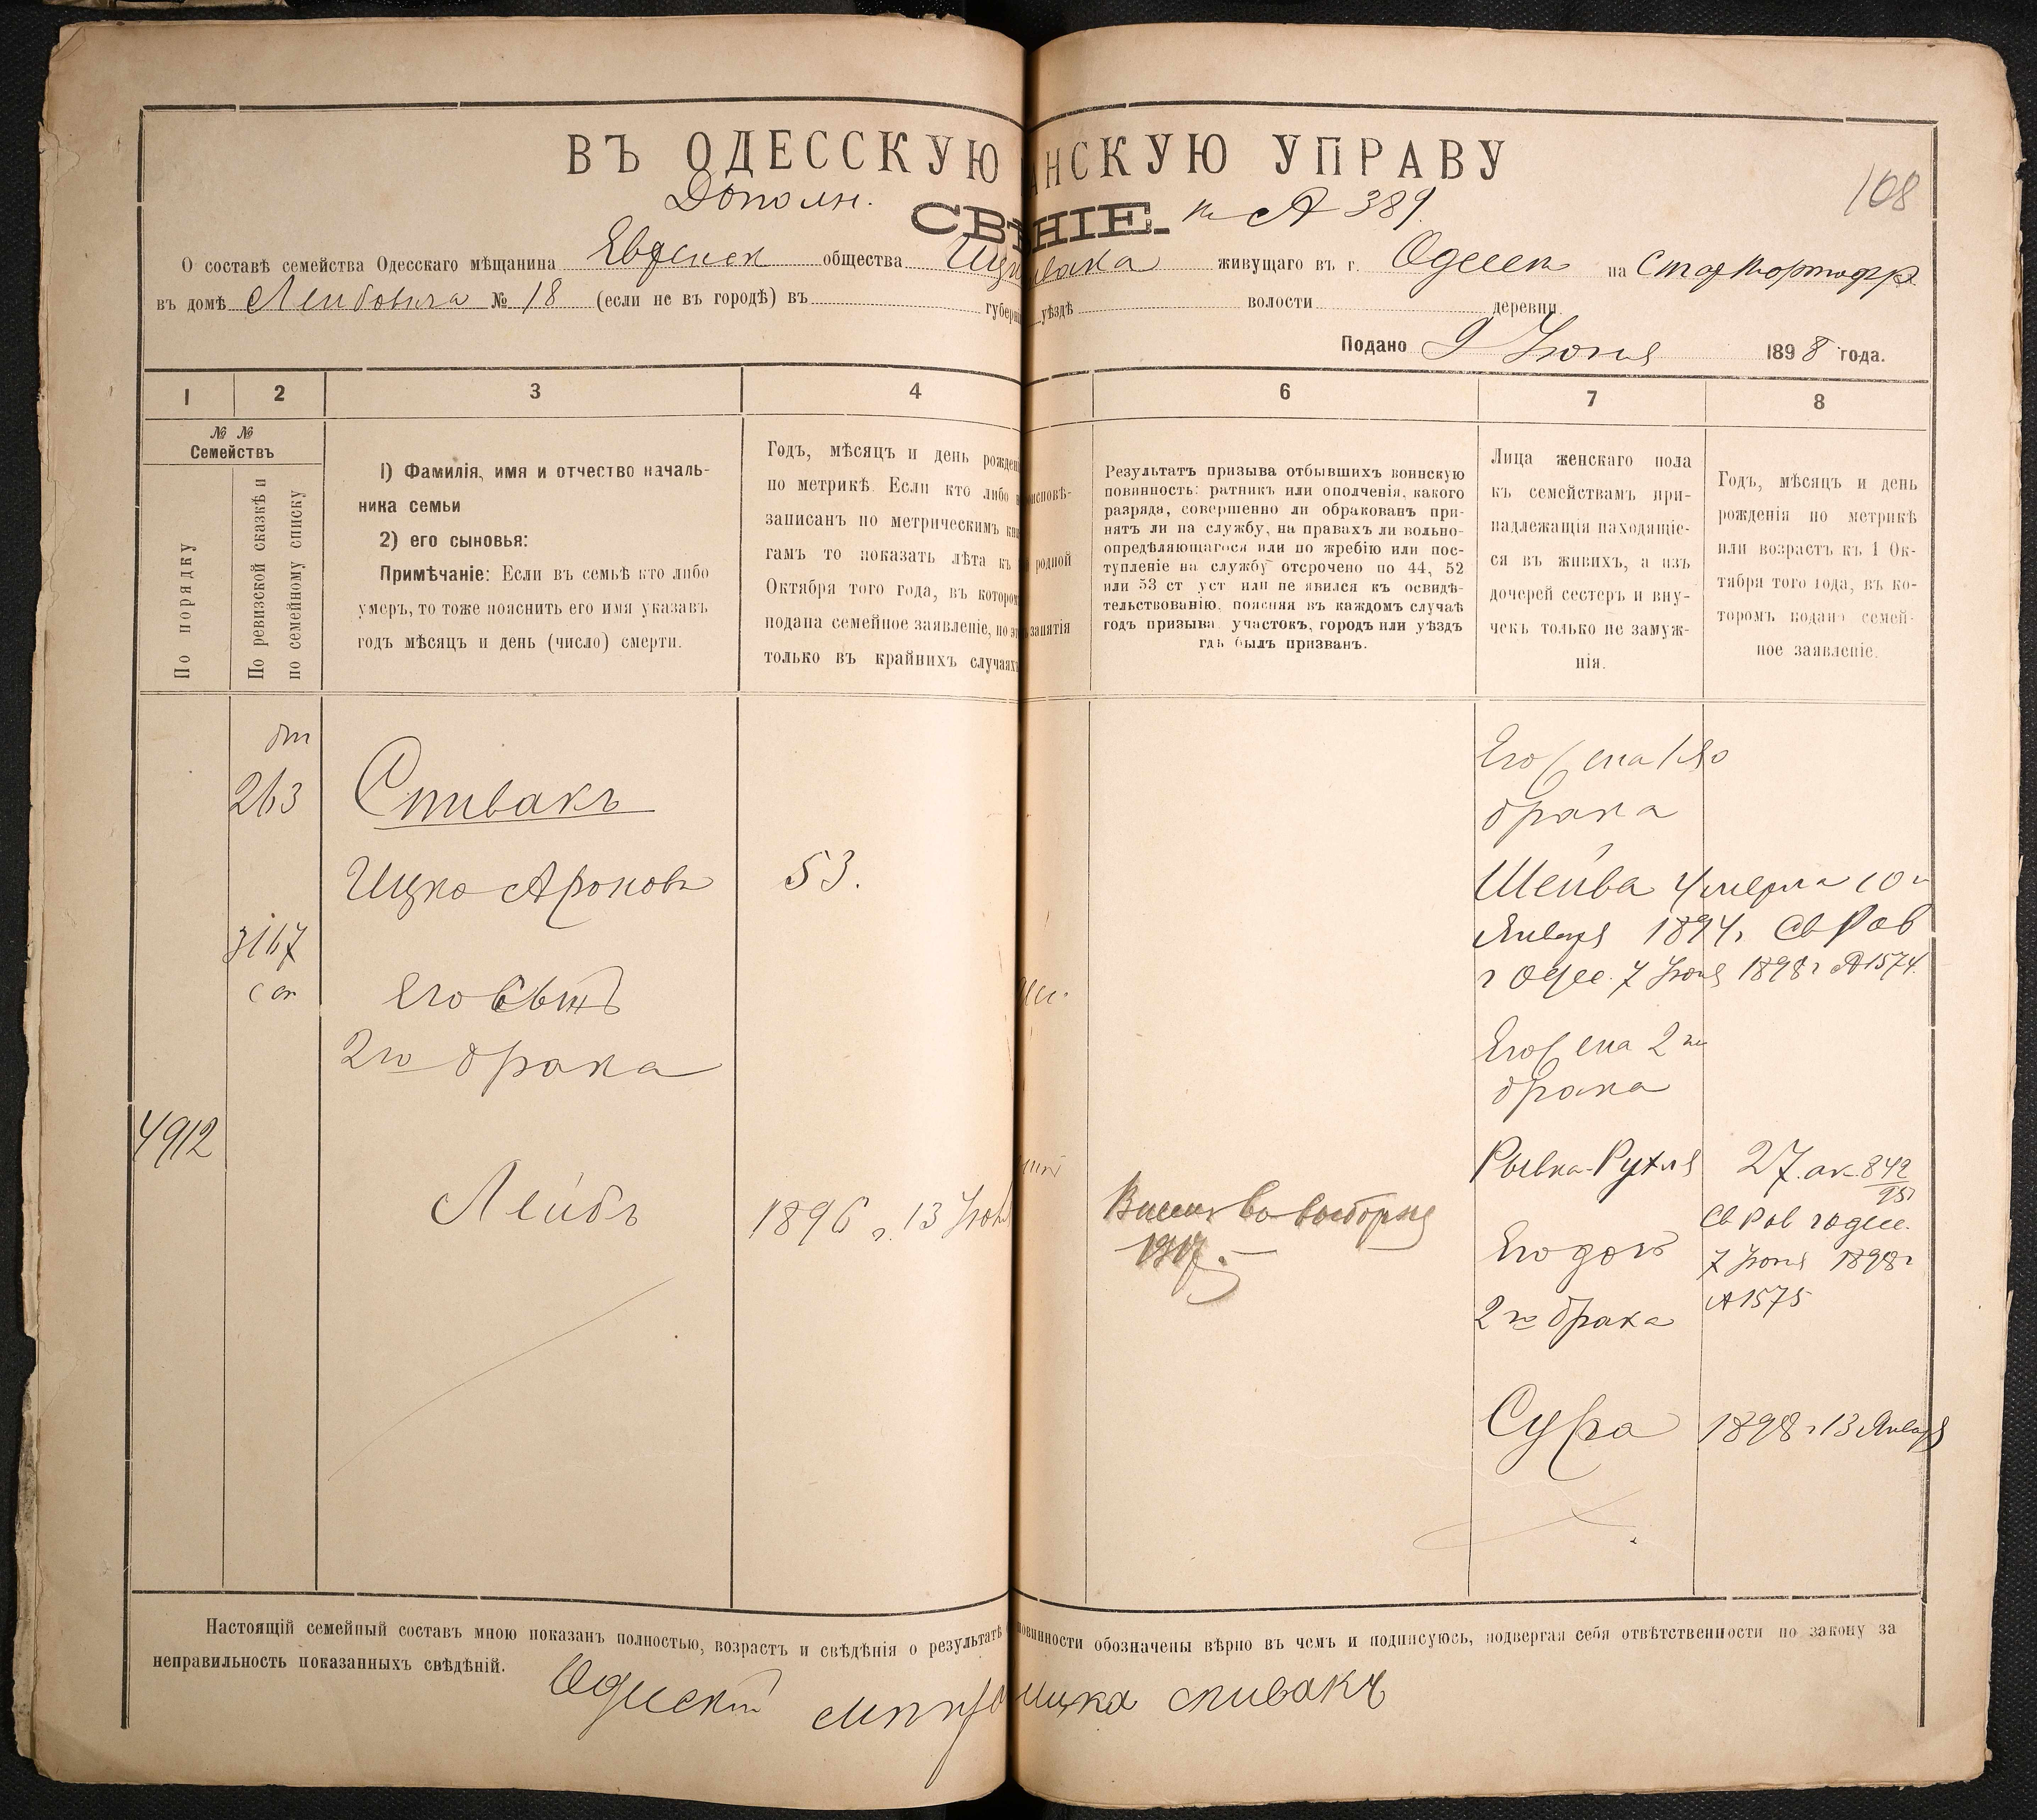 ВЪ ОДЕССКУЮ АНСКУЮ УПРАВУ
108
Дополн.
СВ НІЕ к № 389.
О составѣ семейства Одесскаго мѣщанина Еврейск общества живущаго въ г. Одессе на
въ домѣ Лейбовича № 18 (если не въ городѣ) въ губерн уѣздѣ волости деревни
Подано 9 Іюня 1898 года.
1 2 3 4 6 7 8
№ №
Семействъ
По порядку
По ревизской сказкѣ и
по семейному списку
1) Фамилія, имя и отчество началь-
ника семьи
2) его сыновья:
Примѣчаніе: Если въ семьѣ кто либо
умеръ, то тоже пояснить его имя указавъ
годъ мѣсяцъ и день (число) смерти.
Годъ, мѣсяцъ и день рожден
по метрикѣ. Если кто либо н
записанъ по метрическимъ кни
гамъ то показать лѣта къ
Октября того года, въ которо
подана семейное заявленіе, но эт
только въ крайнихъ случаяхъ
исповѣ-
родной
занятія
Результатъ призыва отбывшихъ воинскую
повинность: ратникъ или ополченія, какого
разряда, совершенно ли обракованъ при-
нятъ ли на службу, на правахъ ли вольно-
опредѣляющагося или по жребію или пос-
тупленіе на службу отсрочено по 44, 52
или 53 ст уст или не явился къ освидѣ-
тельствованію, поясняя въ каждомъ случаѣ
годъ призыва участокъ, городъ или уѣздъ
гдѣ былъ призванъ.
Лица женскаго пола
къ семействамъ при-
надлежащія находящіе-
ся въ живихъ, а изъ
дочерей сестеръ и вну-
чекъ только не замуж-
нія.
Годъ, мѣсяцъ и день
рожденія по метрикѣ
или возрастъ къ 1 Ок-
тября того года, въ ко-
торомъ подано семей-
ное заявленіе.
263
Спивакъ
Ицко Ароновъ
53.
3167
Его Сынъ
2го брака
4912
Лейбъ
1896 г. 13 Іюня
1917.
Его жена 1го
брака
Шейва умерла 10го
Января 1894г Св Рав
г Одес. 7 Іюня 1898г №1574.
Его жена 2го
брака
Рывка-Рухля
27. ак. 842
95
Св Рав г Одес.
7 Іюня 1898г
№1575
Его дочь
2го брака
Сура
1898 г 13 Января
Настоящій семейный составъ мною показанъ полностью, возрастъ и свѣдѣнія о результатѣ повинности обозначены вѣрно въ чемъ и подписуюсь, подвергая себя отвѣтственности по закону за
неправильность показанныхъ свѣдѣній.
Одескій ицка спивакъ